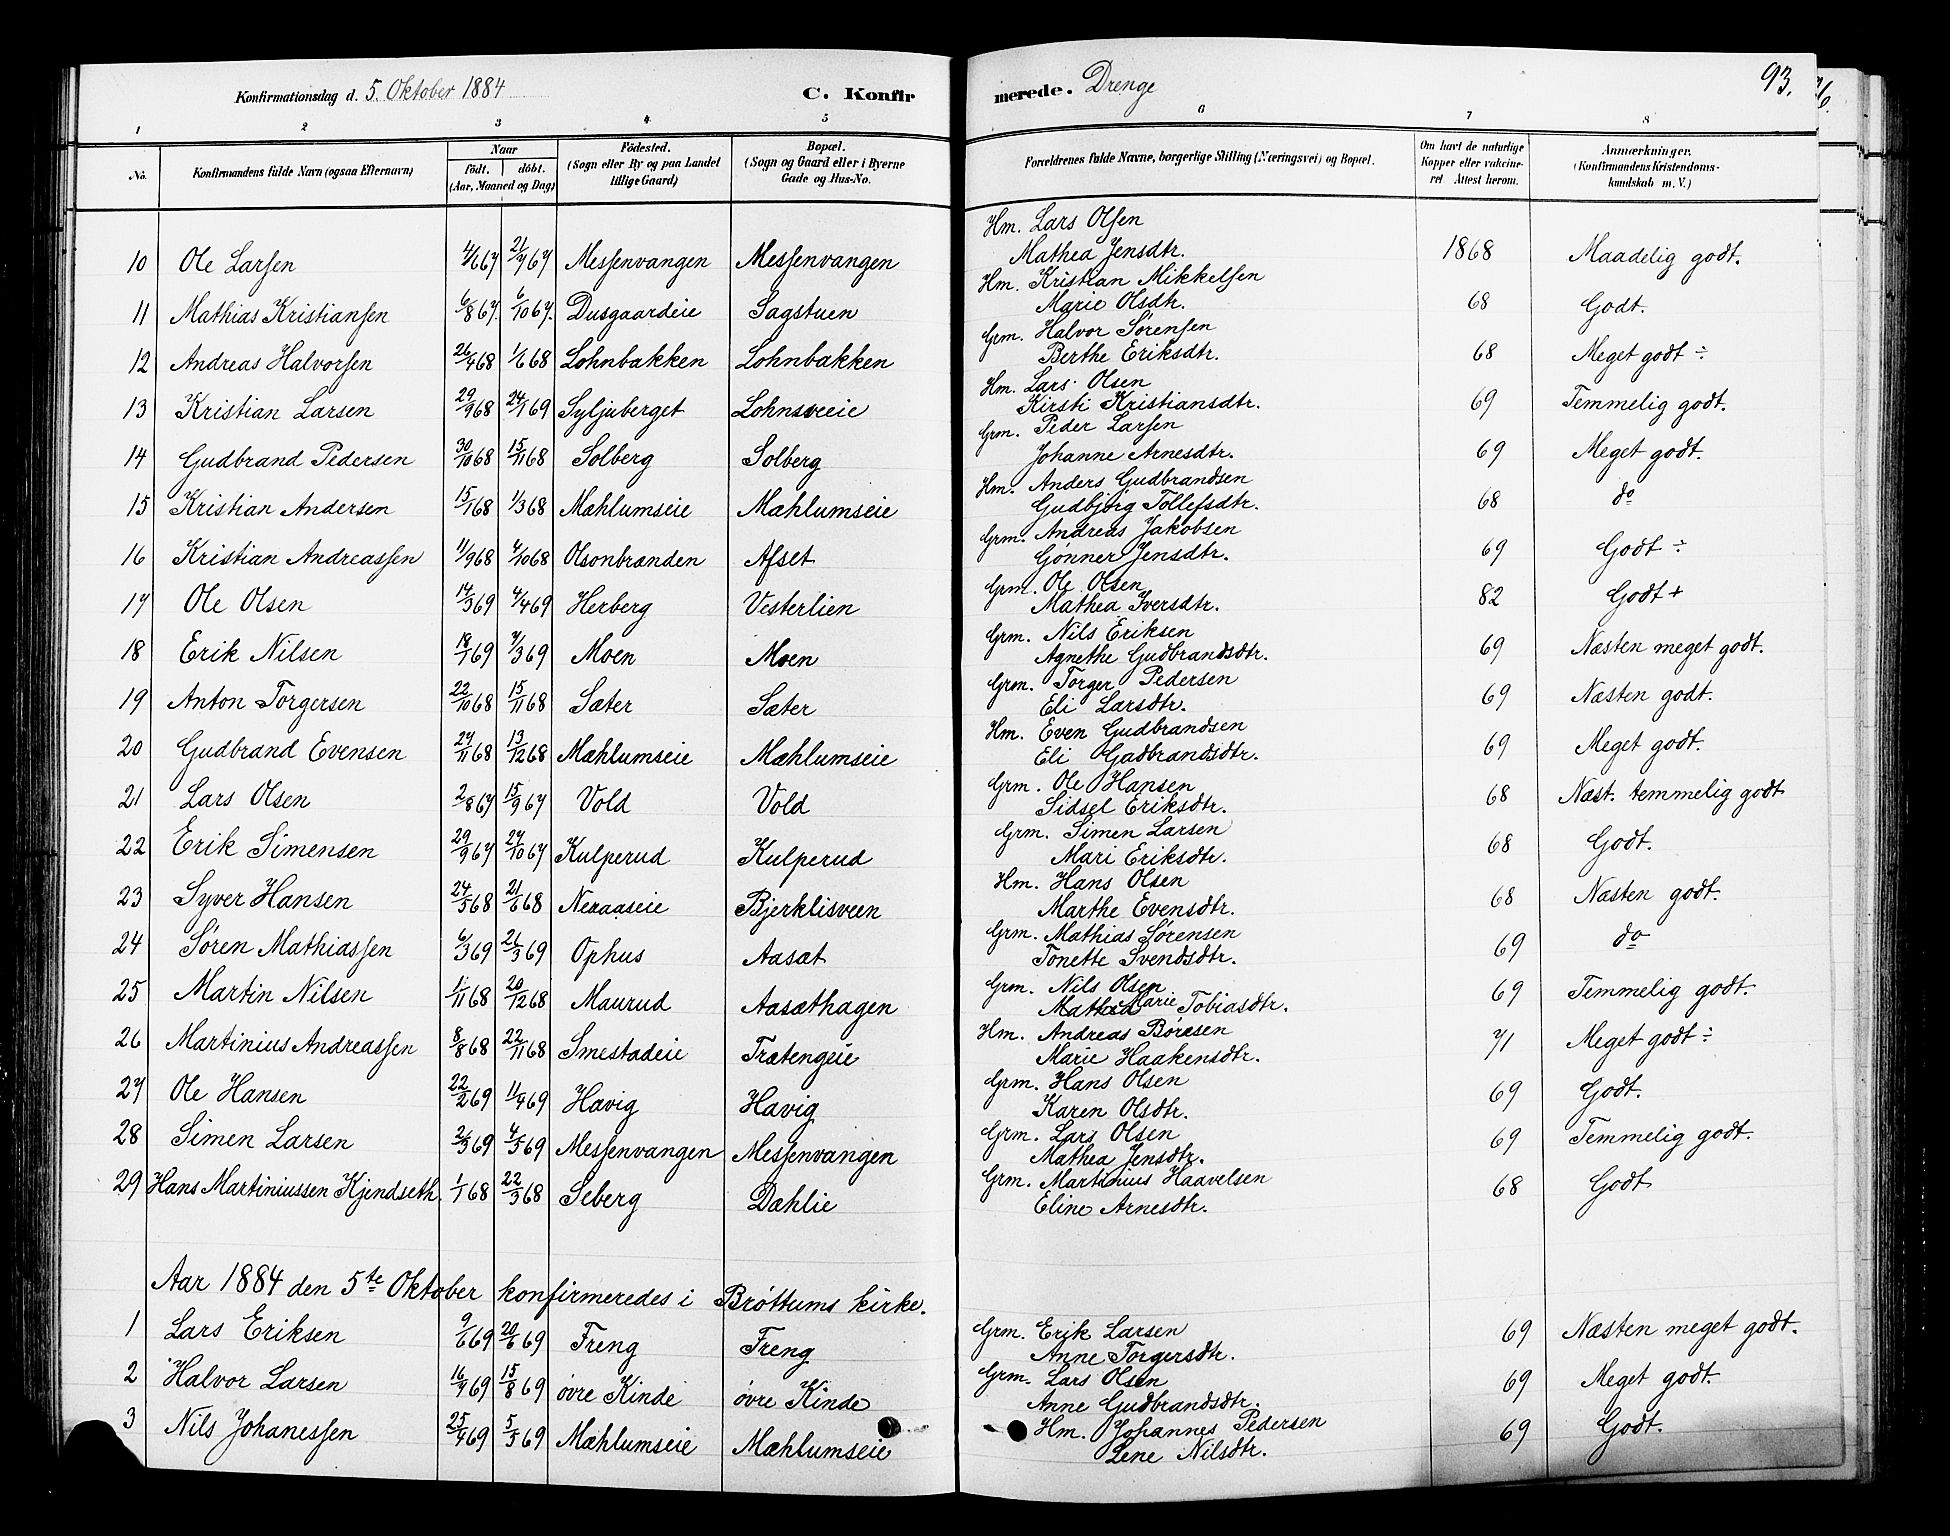 Konfirmationsdag d. 5. Oktober 1884 C. Konfir merede. Drenge 93.
1 2 3 4 5 6 7 8
No. Konfirmandens fulde Navn (ogsaa Efternavn) Naar født. døbt. (Aar, Maaned og Dag) Fødested. (Sogn eller By og paa Landet tillige Gaard) Bopæl. (Sogn og Gaard eller i Byerne Gade og Hus-No. Forældrenes fulde Navne, borgerlige Stilling (Næringsvei) og Bopæl. Om havt de naturlige Kopper eller vaccineret Attest herom. Anmærkninger. (Konfirmandens Kristendomskundskab m. V.)
Hm. Lars Olsen
10 Ole Larsen 4/6 67 21/7 67 Messenvangen Messenvangen Mathea Jensdtr. 1868 Maadelig godt.
Hm. Kristian Mikkelsen
11 Mathias Kristiansen 6/8 67. 6/10 67. Dusgaardeie Sagstuen Marie Olsdtr. 68 Godt.
Grm. Halvor Sørensen
12 Andreas Halvorsen 26/4 68 1/6 68 Lohnbakken Lohnbakken Berthe Eriksdtr. 68 Meget godt ÷
Hm. Lars Olsen
13 Kristian Larsen 29/9 68 24/1 69 Syljuberget Lohnsveeie Kirsti Kristiansdtr. 69 Temmelig godt.
Grm. Peder Larsen
14 Gudbrand Pedersen 30/10 68 15/11 68 Solberg Solberg Johanne Arnesdtr. 69 Meget godt.
Hm. Anders Gudbrandsen
15 Kristian Andersen 15/1 68 1/3 68 Mæhlumseie Mæhlumseie Gudbjørg Tollefsdtr. 68 do
Grm. Andreas Jakobsen
16 Kristian Andreassen 11/9 68 4/10 68 Olsonbrænden Afset Gønner Jensdtr. 69 Godt ÷
Grm. Ole Olsen
17 Ole Olsen 14/3 69 4/4 69 Herberg Vesterlien Mathea Iversdtr. 82 Godt +
Grm. Nils Eriksen
18 Erik Nilsen 18/1 69 7/3 69 Moen Moen Agnethe Gudbrandsdtr. 69 Næsten meget godt.
Grm. Torger Pedersen
19 Anton Torgersen 22/10 68 15/11 68 Sæter Sæter Eli Larsdtr. 69 Næsten godt.
Hm. Even Gudbrandsen
20 Gudbrand Evensen 27/11 68 13/12 68 Mæhlumseie Mæhlumseie Eli Gudbrandsdtr. 69 Meget godt.
Grm. Ole Hansen
21 Lars Olsen 2/8 67 15/9 67 Vold Vold Sidsel Eriksdtr. 68 Næst. temmelig godt
Grm. Simen Larsen
22 Erik Simensen 29/9 67 27/10 67 Kulperud Kulperud Mari Eriksdtr. 68 Godt.
Hm. Hans Olsen
23 Syver Hansen 24/5 68 21/6 68 Neraaseie Bjerklisveen Marthe Evensdtr. 68 Næsten godt.
Grm. Mathias Sørensen
24 Søren Mathiassen 6/3 69 26/3 69 Ophus Aasæt Tonette Svendsdtr. 69 do
Grm. Nils Olsen
25 Martin Nilsen 1/11 68 20/12 68 Maurud Aasæthagen Mathea Marie Tobiasdtr. 69 Temmelig godt.
Hm. Andreas Børesen
26 Martinius Andreassen 8/8 68 22/11 68 Smestadeie Trætengeie Marie Haakensdtr. 71 Meget godt ÷
Grm. Hans Olsen
27 Ole Hansen 22/2 69 11/4 69 Hævig Hævig Karen Olsdtr. 69 Godt.
Grm. Lars Olsen
28 Simen Larsen 26/3 69 4/5 69 Messenvangen Messenvangen Mathea Jensdtr. 69 Temmelig godt.
Grm. Martinius Haavelsen
29 Hans Martiniussen Kjendseth. 1/1 68 22/3 68 Seberg Dæhlie Eline Arnesdtr. 68 Godt
Aar 1884 den 5te Oktober konfirmeredes i Brøttums kirke.
1 Lars Eriksen 9/6 69 20/6 69 Freng Freng Grm. Erik Larsen 69 Næsten meget godt.
Anne Torgersdtr.
2 Halvor Larsen 16/7 69 15/8 69 øvre Kinde øvre Kinde Grm. Lars Olsen 69 Meget godt.
Anne Gudbrandsdtr.
3 Nils Johanessen 25/4 69 5/5 69 Mæhlumseie Mæhlumseie Hm. Johannes Pedersen 69 Godt.
Lene Nilsdtr.